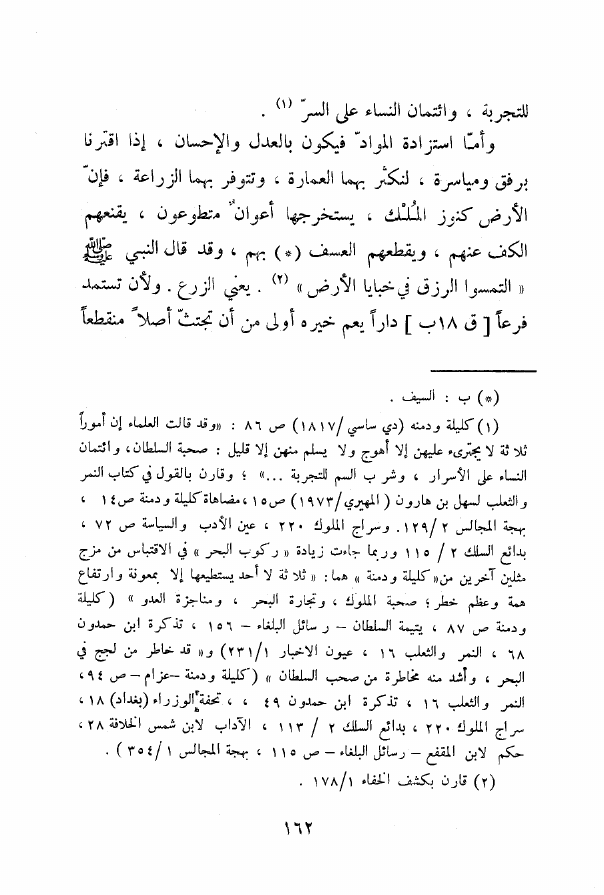 للتجربة ، وائتمان النساء على السرّ (١) .
وأمـّا استزادة الموادّ فيكون بالعدل والإحسان ، إذا اقترنا
برفق ومياسرة ، لتكثر بهما العمارة ، وتتوفر بهما الزراعة ، فإنّ
الأرض كنوز المُلـْك ، يستخرجها أعوانٌ متطوعون ، يقنعهم
الكف عنهم ، ويقطعهم العسف (*) بهم ، وقد قال النبي ﷺ
« التمسوا الرزق في خبايا الأرض » (٢) . يعني الزرع . ولأن تستمد
فرعاً [ ق ١٨ب ] داراً يعم خيره أولى من أن تجتثّ أصلاً منقطعاً
(*) ب : السيف .
(١) كليلة ودمنه (دي ساسي/١٨١٧) ص ٨٦ : «وقد قالت العلماء إن أموراً
ثلاثة لا يجترىء عليهن إلا أهوج ولا يسلم منهن إلا قليل : صحبة السلطان، وائتمان
النساء على الأسرار ، وشرب السم للتجربة ...» ؛ وقارن بالقول في كتاب النمر
والثعلب لسهل بن هارون ( المهيري/١٩٧٣) ص١٥، مضاهاة كليلة ودمنة ص١٤ ،
بهجة المجالس ١٢٩/٢. وسراج الملوك ٢٢٠ ، عين الأدب والسياسة ص ٧٢ ،
بدائع السلك ٢ / ١١٥ وربما جاءت زيادة « ركوب البحر » في الاقتباس من مزج
مثلين آخرين من« كليلة ودمنة » هما: « ثلاثة لا أحد يستطيعها إلا بمعونة وارتفاع
همة وعظم خطر؛ صحبة الملوك ، وتجارة البحر ، ومناجزة العدو » (كليلة
ودمنة ص ٨٧ ، يتيمة السلطان – رسائل البلغاء – ١٥٦ ، تذكرة ابن حمدون
٦٨ ، النمر والثعلب ١٦ ، عيون الاخبار ٢٣١/١) و« قد خاطر من لجج في
البحر ، وأشد منه مخاطرة من صحب السلطان » (كليلة ودمنة –عزام– ص ٩٤،
النمر والثعلب ١٦ ، تذكرة ابن حمدون ٤٩ ، ، تحفة الوزراء (بغداد) ١٨ ،
سراج الملوك ٢٢٠ ، بدائع السلك ٢ / ١١٣ ، الآداب لابن شمس الخلافة ٢٨ ،
حكم لابن المقفع – رسائل البلغاء – ص ١١٥ ، بهجة المجالس ٣٥٤/١) .
(٢) قارن بكشف الخفاء ١٧٨/١ .
١٦٢